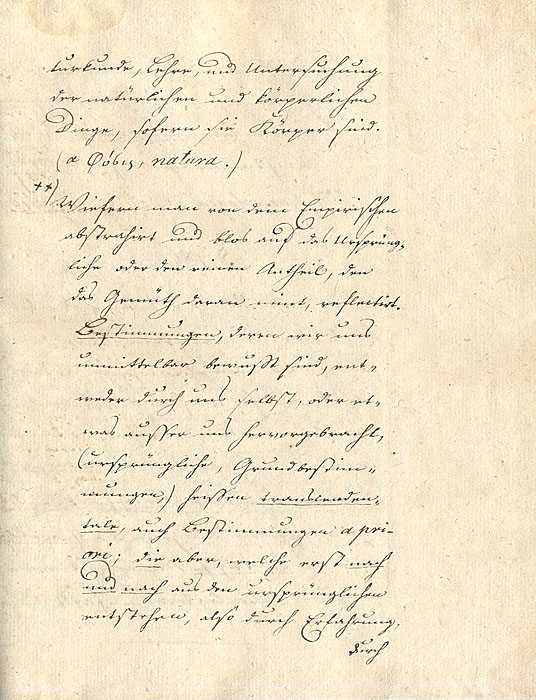 turkunde, Lehre, und Untersuchung
der natürlichen und körperlichen
Dinge, sofern sie Körper sind.
(a Φύσις, natura.)
++) Wiefern man von dem Empirischen
abstrahirt und blos auf das Ursprüng-
liche oder den reinen Antheil, den
das Gemüth daran nimt, reflectirt.
Bestimmungen, deren wir uns
unmittelbar bewußt sind, ent-
weder durch uns selbst, oder et-
was ausser uns hervorgebracht,
(ursprüngliche, Grundbestim-
mungen,) heissen transcenden-
tale, auch Bestimmungen a pri-
ori; die aber, welche erst nach
und nach aus den ursprünglichen
entstehen, also durch Erfahrung,
durch